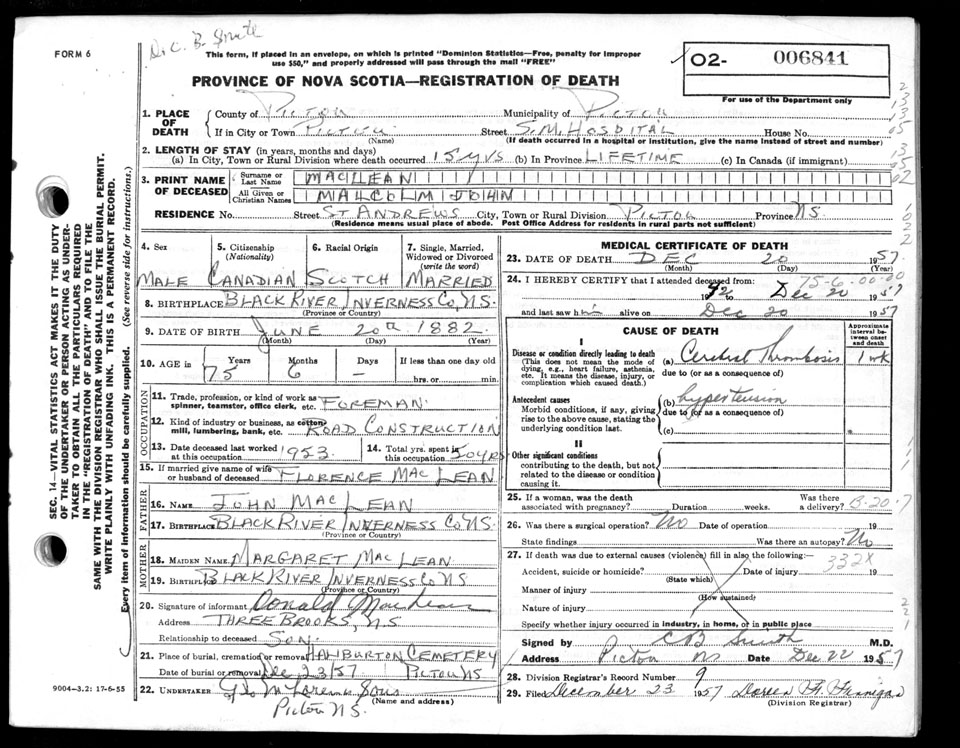 FORM 6
Dr. C. B. Smith
This form, if placed in an envelope, on which is printed "Dominion Statistics—Free, penalty for improper
use $50," and properly addressed will pass through the mail "FREE"
PROVINCE OF NOVA SCOTIA—REGISTRATION OF DEATH
02- 006841
For use of the Department only
1. PLACE OF DEATH
County of PICTOU Municipality of PICTOU
If in City or Town PICTOU Street S.M. HOSPITAL House No.
(Name) (If death occurred in a hospital or institution, give the name instead of street and number)
2. LENGTH OF STAY (in years, months and days)
(a) In City, Town or Rural Division where death occurred 15 yrs (b) In Province LIFETIME (c) In Canada (if immigrant)
3. PRINT NAME OF DECEASED
Surname or Last Name MACLEAN
All Given or Christian Names MALCOLM JOHN
RESIDENCE No. Street ST ANDREWS City, Town or Rural Division PICTOU Province NS
(Residence means usual place of abode. Post Office Address for residents in rural parts not sufficient)
4. Sex 5. Citizenship (Nationality) 6. Racial Origin 7. Single, Married, Widowed or Divorced (write the word)
MALE CANADIAN SCOTCH MARRIED
8. BIRTHPLACE BLACK RIVER INVERNESS CO, N.S.
(Province or Country)
9. DATE OF BIRTH JUNE 20th 1882.
(Month) (Day) (Year)
10. AGE in Years Months Days If less than one day old
75 6 — hrs. or min.
OCCUPATION
11. Trade, profession, or kind of work as spinner, teamster, office clerk, etc. FOREMAN.
12. Kind of industry or business, as cotton mill, lumbering, bank, etc. ROAD CONSTRUCTION
13. Date deceased last worked at this occupation 1953 14. Total yrs. spent in this occupation 50 yrs
15. If married give name of wife or husband of deceased FLORENCE MAC LEAN
FATHER
16. NAME JOHN MAC LEAN
17. BIRTHPLACE BLACK RIVER INVERNESS CO NS.
(Province or Country)
MOTHER
18. MAIDEN NAME MARGARET MAC LEAN
19. BIRTHPLACE BLACK RIVER INVERNESS CO NS
(Province or Country)
20. Signature of informant Donald MacLean
Address THREE BROOKS, N.S
Relationship to deceased SON.
21. Place of burial, cremation or removal HALIBURTON CEMETERY
Date of burial or removal Dec 23/57 PICTOU NS
22. UNDERTAKER Sons
PICTOU N.S.
(Name and address)
9004-3.2: 17-6-55
MEDICAL CERTIFICATE OF DEATH
23. DATE OF DEATH DEC 20 1957
(Month) (Day) (Year)
75-6-00-00
24. I HEREBY CERTIFY that I attended deceased from:
42 to Dec 20 1957
and last saw him alive on Dec 20 1957
CAUSE OF DEATH
Approximate interval between onset and death
I
Disease or condition directly leading to death (a) Cerebral Thrombosis 1 wk
(This does not mean the mode of dying, e.g., heart failure, asthenia, etc. It means the disease, injury, or complication which caused death.)
due to (or as a consequence of)
Antecedent causes (b) hypertension
Morbid conditions, if any, giving rise to the above cause, stating the underlying condition last.
due to (or as a consequence of)
(c)
II
Other significant conditions
contributing to the death, but not related to the disease or condition causing it.
25. If a woman, was the death associated with pregnancy? Duration weeks. Was there a delivery? B-20-7
26. Was there a surgical operation? No Date of operation 19
State findings Was there an autopsy? No
27. If death was due to external causes (violence) fill in also the following:— 332X
Accident, suicide or homicide? Date of injury 19
(State which)
Manner of injury
(How sustained)
Nature of injury
Specify whether injury occurred in industry, in home, or in public place
Signed by CB Smith M.D.
Address Pictou NS Date Dec 22 1957
28. Division Registrar's Record Number 9
29. Filed December 23 1957 Doreen H. Finnigan
(Division Registrar)
SEC. 14—VITAL STATISTICS ACT MAKES IT THE DUTY
OF THE UNDERTAKER OR PERSON ACTING AS UNDER-
TAKER TO OBTAIN ALL THE PARTICULARS REQUIRED
IN THE "REGISTRATION OF DEATH" AND TO FILE THE
SAME WITH THE DIVISION REGISTRAR WHO SHALL ISSUE THE BURIAL PERMIT.
WRITE PLAINLY WITH UNFADING INK. THIS IS A PERMANENT RECORD.
Every item of information should be carefully supplied. (See reverse side for instructions.)